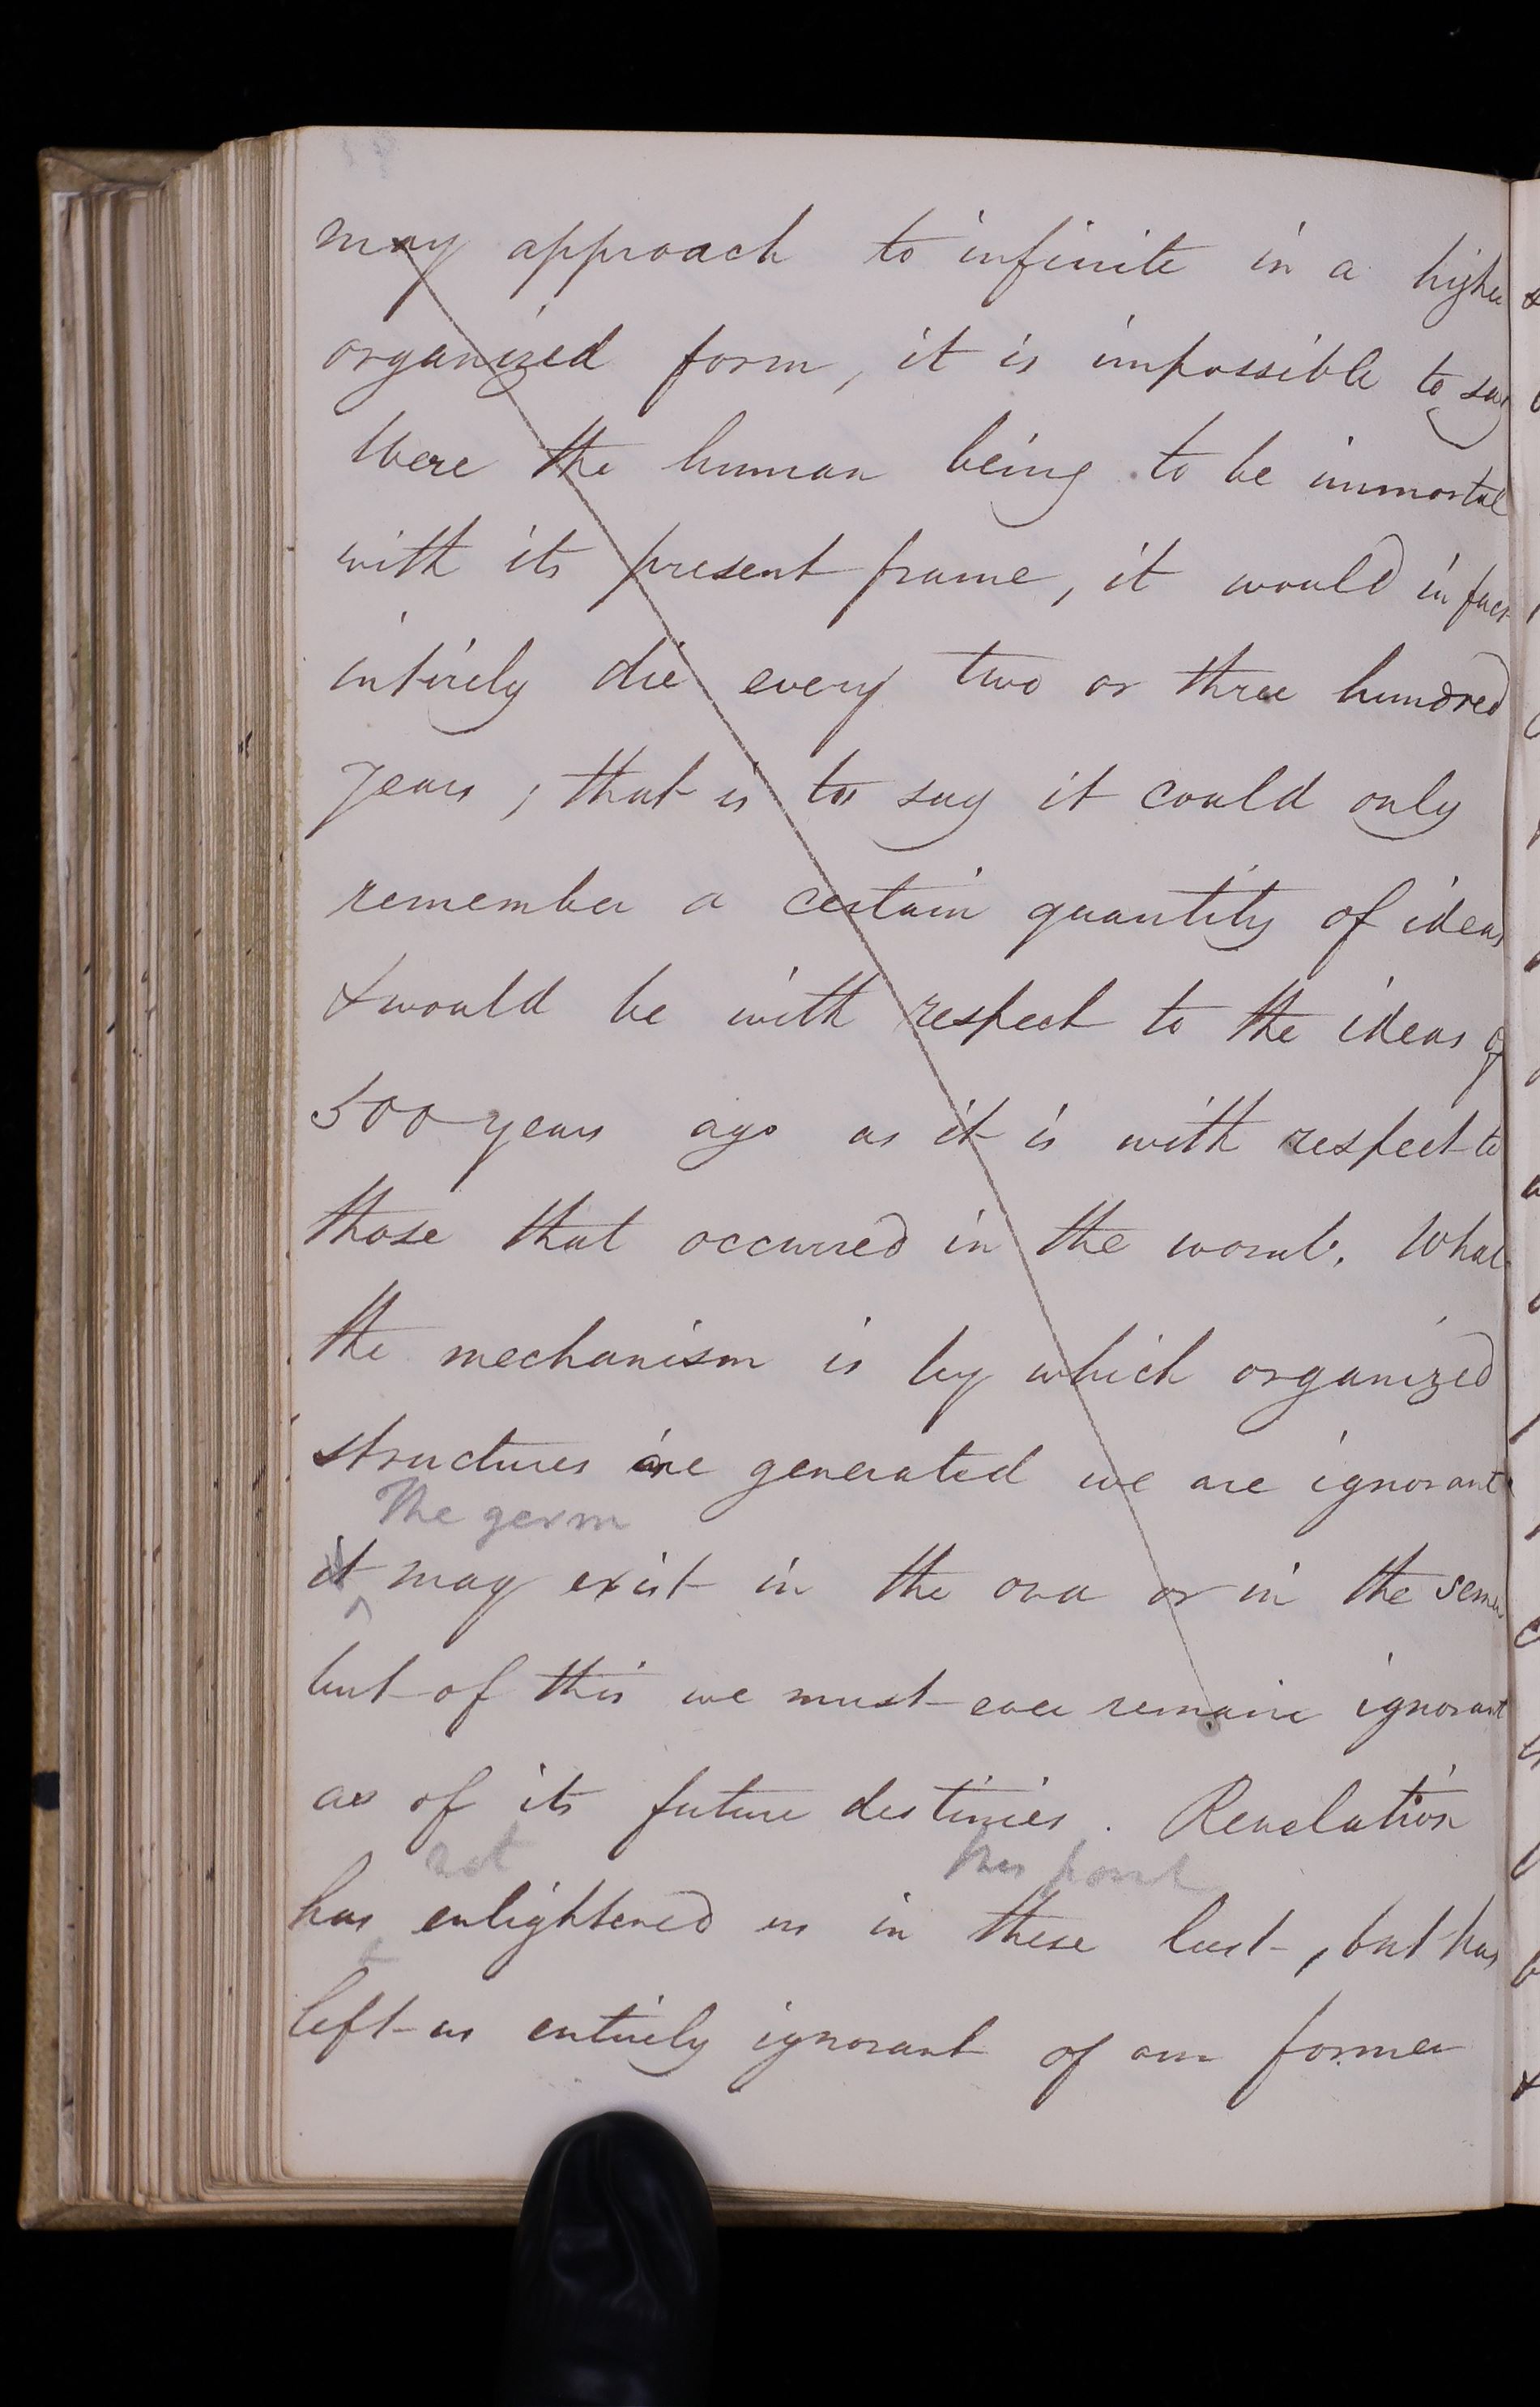 may approach to infinite in a higher
organized form, it is impossible to say
Were the human being to be immortal
with its present frame, it would in fact
intirely die every two or three hundred
years; that is to say it could only
remember a certain quantity of ideas
& would be with respect to the ideas of
500 years ago as it is with respect to
those that occurred in the womb. What
the mechanism is by which organized
structures are generated we are ignorant
The germ
it may exist in the ova or in the semen
but of this we must ever remain ignorant
as of its future destinies. Revelation
not this point
has enlightened us in these last, but has
left us entirely ignorant of our former